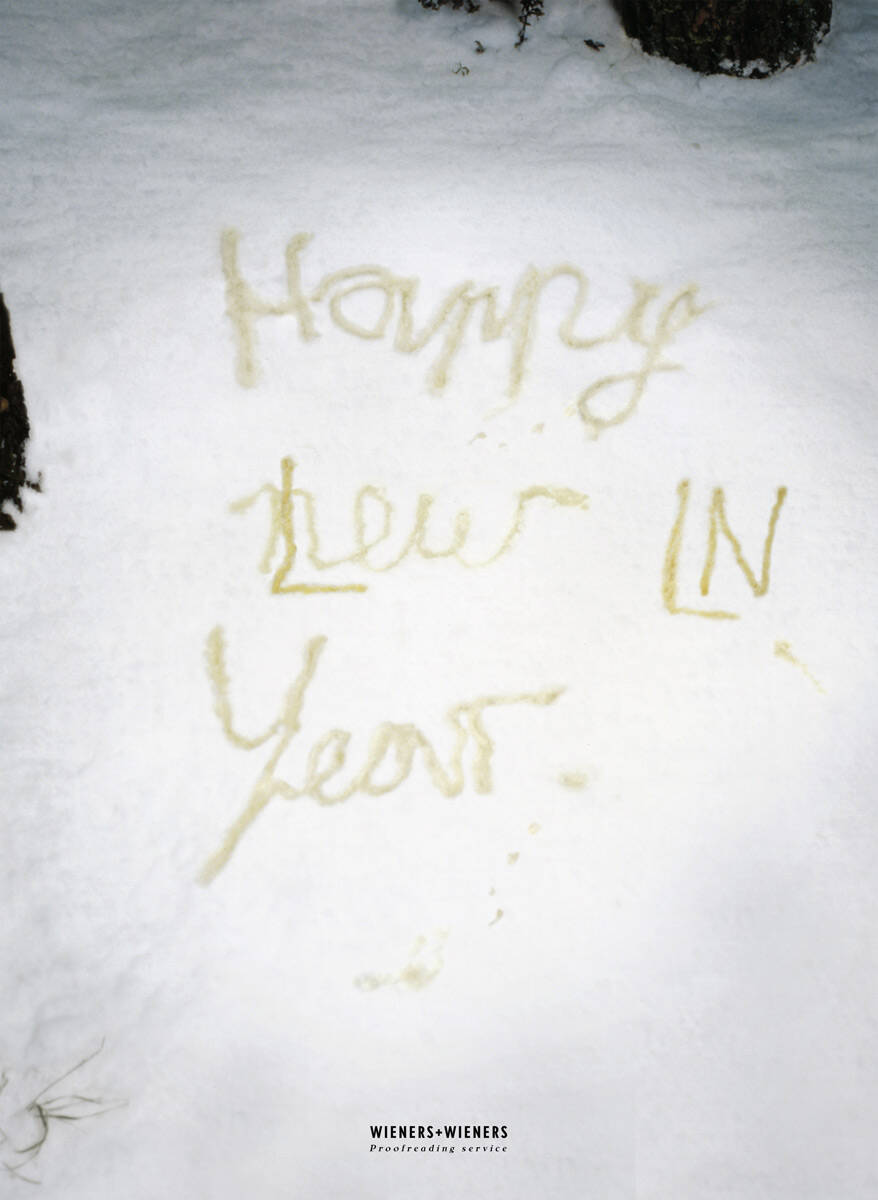 Happy
new LN
Year.
WIENERS+WIENERS
Proofreading service